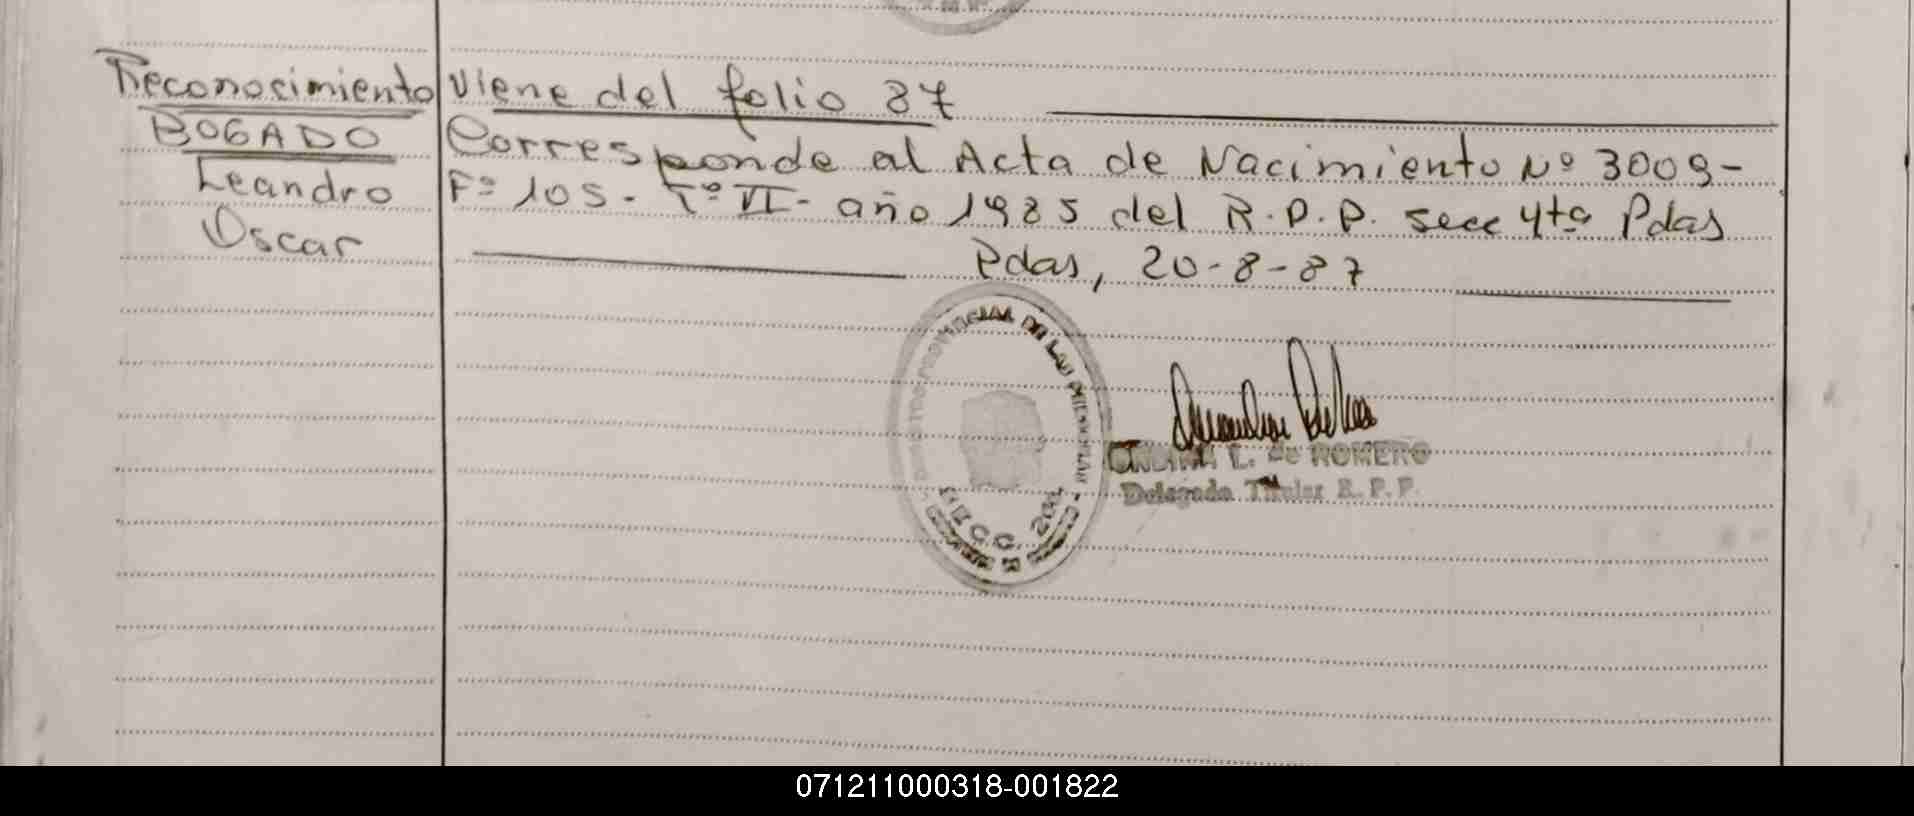 Reconocimiento
BOGADO
Leandro
Oscar
Viene del folio 87
Corresponde al Acta de Nacimiento Nº 3009-
Fº 105 - Tº VI - año 1985 del R.P.P. secc 4ta Pdas
Pdas, 20-8-87
PROVINCIAL DE LAS PERSONAS
L. de ROMERO
Delegada Titular R. P. P.
071211000318-001822